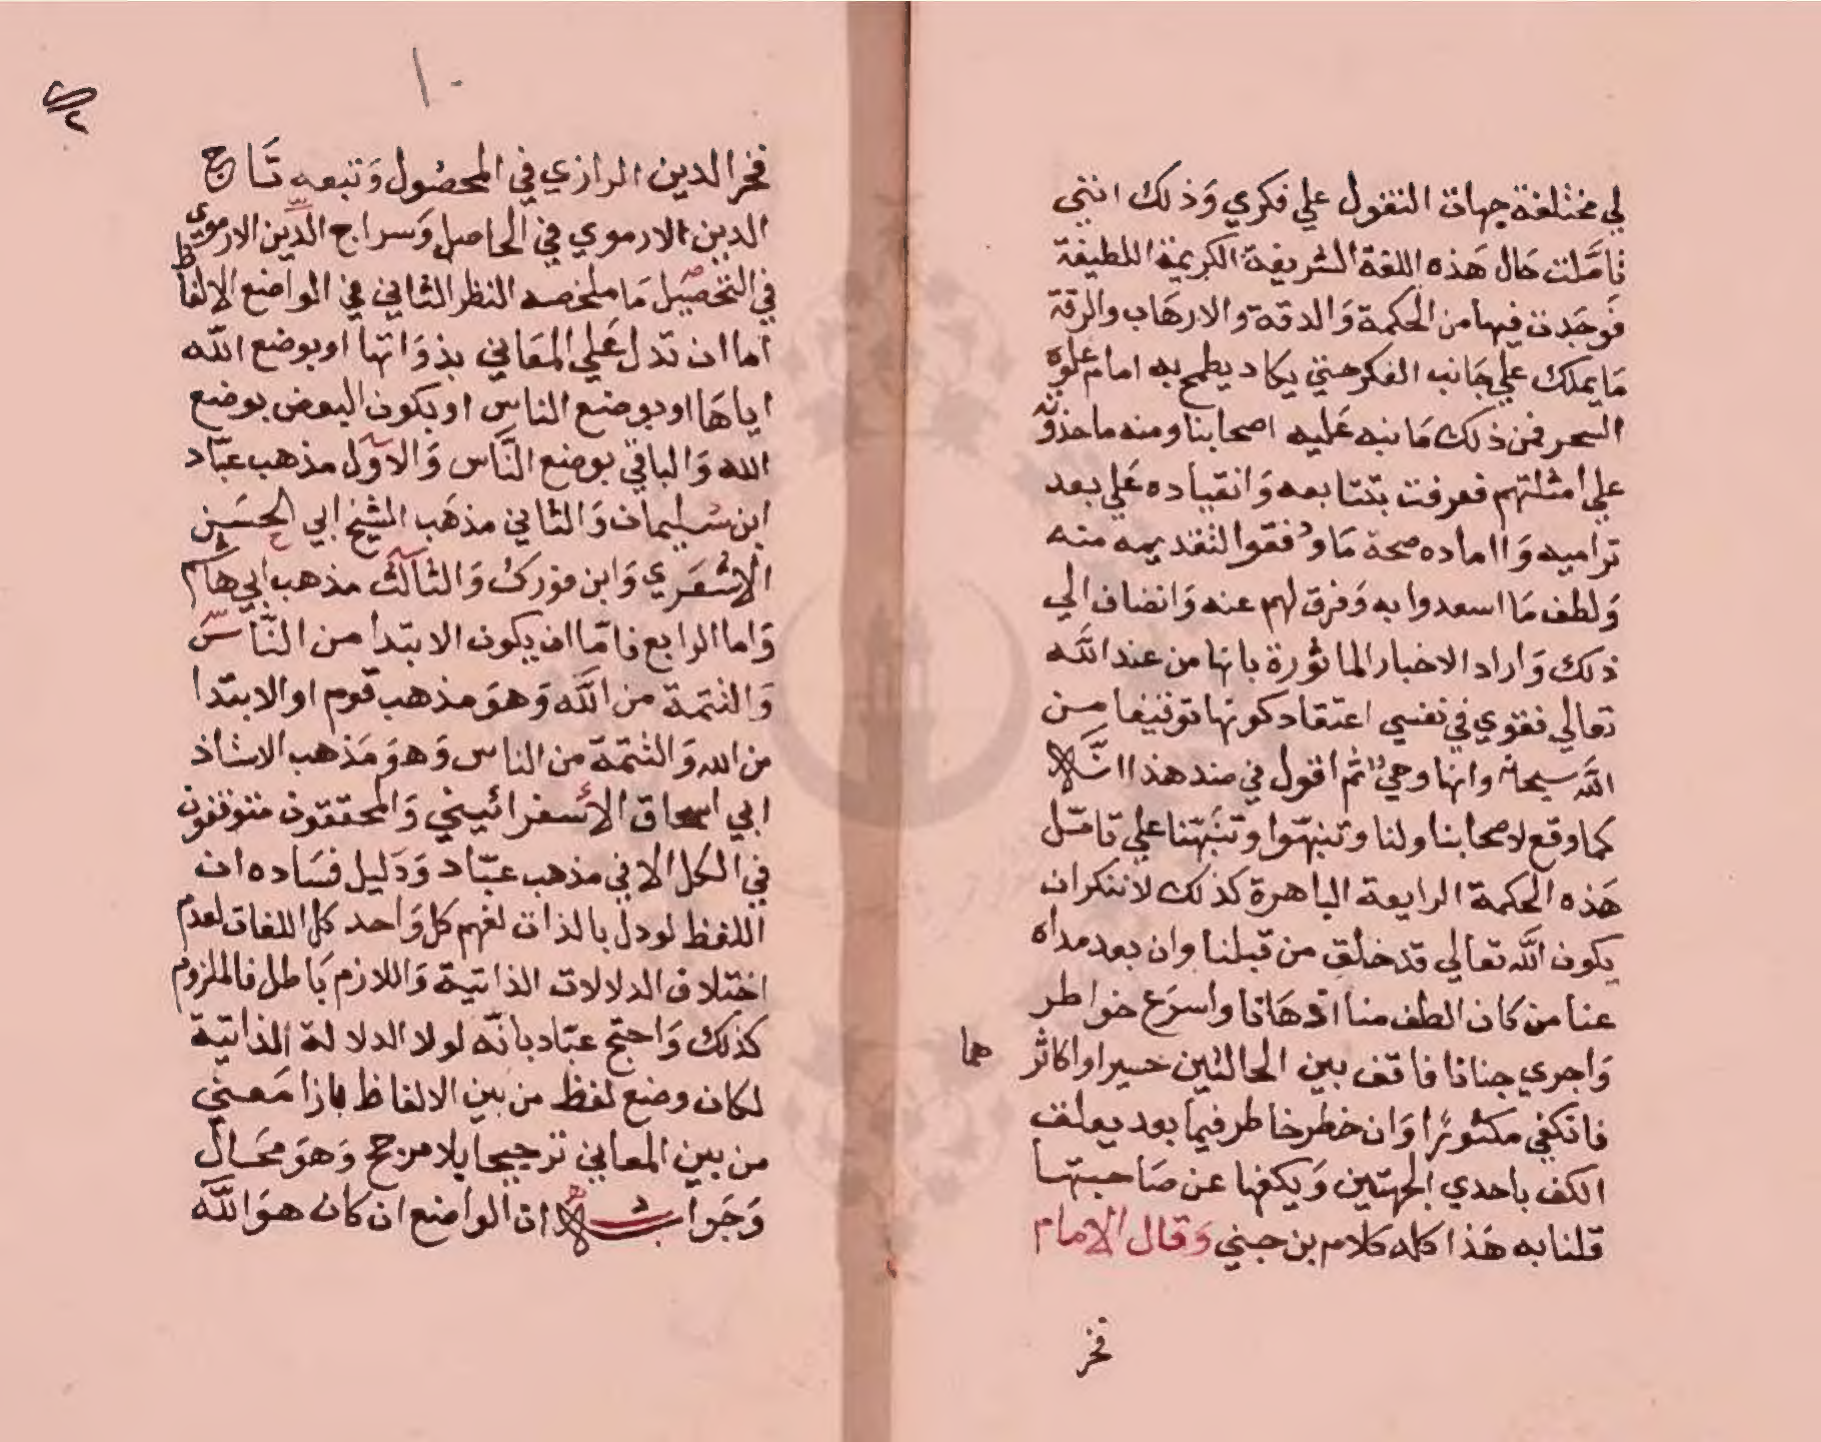 لي مختلفة جهات التغول علي فكري وَذلك انني
تامَّلت حَال هَذه اللغة الشريفة الكريمة اللطيفة
فوجَدت فيها من الحكمة وَالدقة والارهَاب والرقة
مَا يملك علي جَانب الفكر حتي يكاد يطمح به امام علوة
السحر فمن ذلك مَا نبه عَليه اصحابنا ومنه ما حذوته
علي امثلتهم فعرفت بتتابعه وَانقياده عَلي بعد
تراميه وَاماده صحة مَا وفقوا لتقديمه منه
وَلطف مَا اسعدوا به وَفرق لهم عنه وَانضاف الي
ذلك وَاراد الاخبار الماثورة بانها من عند الله
تعالي فقوي في نفسي اعتقاد كونها توقيفا من
الله سبحانه وانها وحي ثم اقول في ضد هذا انه
كما وقع لاصحابنا ولنا وتنبهّوا وتنبهّنا علي تامّل
هَذه الحكمة الرايعة الباهرة كذلك لا ننكر ان
يكون الله تعالي قد خلق من قبلنا وان بعد مداه
عنا من كان الطف منا اذهَانا واسرَع خواطر
وَاجري جنانا فاقف بين الحالتين حسيرا واكاثرهما
فانكفي مكثورًا وَان خطر خاطر فيما بعد يعلق
الكف باحدي الجهتين وَيكفها عن صَاحبتها
قلنا به هَذا كله كلام بن جني وَقال الامام
فخر
١٠
فخر الدين الرازي في المحصُول وَتبعه تَاج
الدين الارموي في الحاصل وَسراج الدّين الارموي
في التحصيل مَا ملخصه النظر الثاني في الواضع الالفاظ
اما ان تدل عَلي المعَاني بذوَاتها او بوضع الله
اياهَا او بوضع الناس او يكون البعض بوضع
الله وَالباقي بوضع النَّاس وَالاوّل مذهب عبّاد
ابن سليمان وَالثاني مذهَب الشيخ ابي الحسَن
الاشعَري وَابن فورك وَالثالث مذهب ابي هاشم
وَاما الرابع فامّا ان يكون الابتدا من النَّاس
وَالتتمة من الله وَهوَ مذهب قوم او الابتدا
من الله وَالتتمّة من الناس وَهوَ مَذهب الاستاذ
ابي اسحاق الاسفرائيني وَالمحققون متوقفون
في الكل الا في مذهب عبّاد وَدَليل فسَاده ان
اللفظ لو دل بالذات لفهم كل وَاحد كل اللغات لعدم
اختلاف الدلالات الذاتية وَاللازم بَاطل فالملزوم
كذلك وَاحتج عبّاد بانّه لولا الدلالة الذاتية
لكان وضع لفظ من بين الالفاظ بازا مَعني
من بين المعاني ترجيحا بلا مرجح وَهوَ محَال
وَجَوابه ان الواضع ان كان هوَ الله